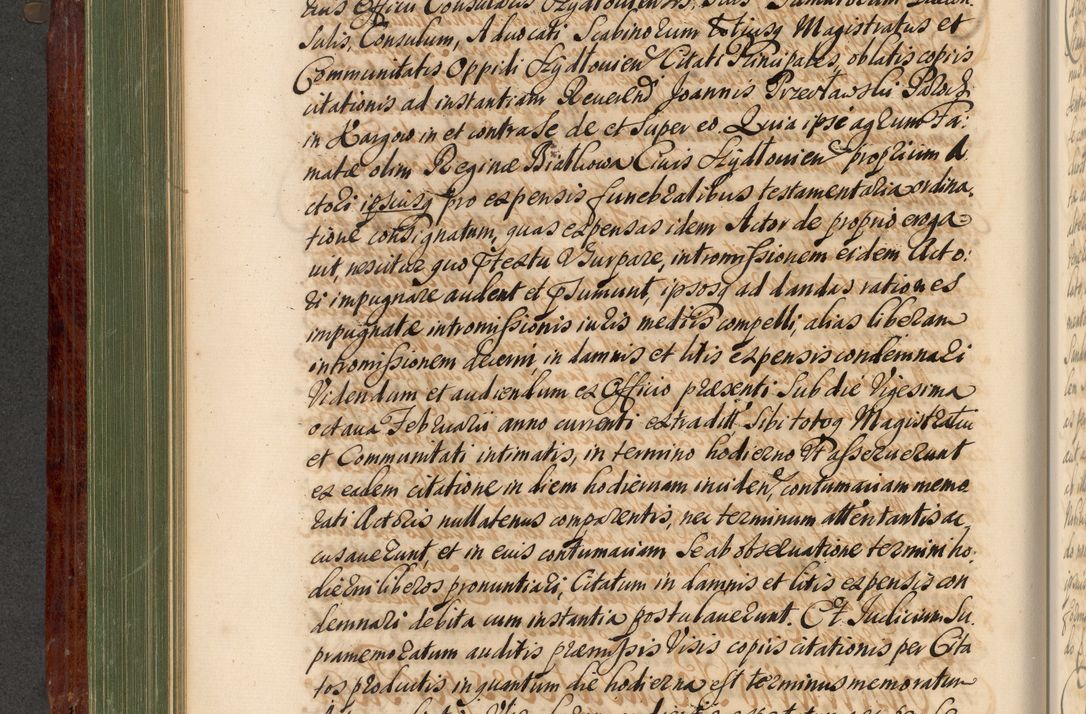 Sulis, Consulum, Advocati Scabinorum totiusq Magistratus et
Communitatis Oppidi Szydlovien Citati Principales, oblatis copijs
citationis ad instantiam Reverend Joannis Przecławski
in Kargow in et contra se de et super eo. Quia ipsi agrum Fa:
matæ olim Reginæ Białkowa Civis Szydlovien proprium A
ctori ipsiusq pro expensis funebralibus testamentaria ordina,
tione consignatum, quas expensas idem Actor de proprio eroga=
vit, nescitur quo prtextu Usurpare, intromissionem eidem Acto:
ri impugnare audent et prsumunt, ipsosq ad dandas rationes
impugnatæ intromissionis iuris medijs compelli, alias liberam
intromissionem decerni in damnis et litis expensis condemnari
Videndum et audiendum ex Officio præsenti Sub die Vigesima
octava Februarii anno currenti extradit Sibi totoq Magistratui
et Communitati intimatis, in termino hodierno Ut asseruerunt
ex eadem citatione in diem hodiernam inciden, contumaciam memo
rati Actoris nullatenus comparentis, nec terminum attentantis ac,
cusaverunt, et in eius contumaciam Se ab observatione termini ho,
dierni liberos pronuntiari, Citatum in damnis et litis expensis con
demnari debita cum instantia postulaverunt. Et Judicium Su,
pramemoratum auditis præmissis Visis copijs citationis per Cita
tos productis in quantum die hodierna est terminus memoratum